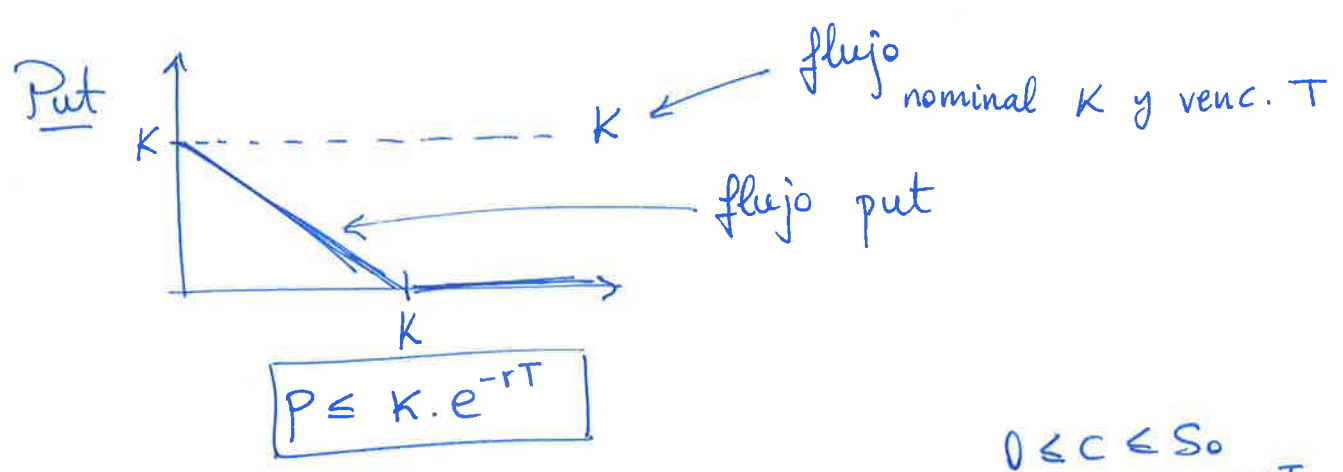 Put
flujo
nominal K y venc. T
K
K
flujo put
K
P ≤ K.e^{-rT}
0 ≤ C ≤ S₀
T